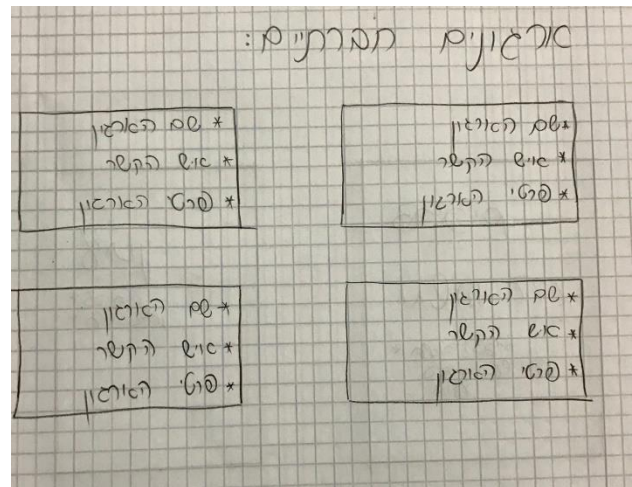 ארגונים
* שם הארגון
* איש הקשר
* פרטי הארגון
* שם הארגון
* איש הקשר
* פרטי הארגון
* שם הארגון
* איש הקשר
* פרטי הארגון
* שם הארגון
* איש הקשר
* פרטי הארגון